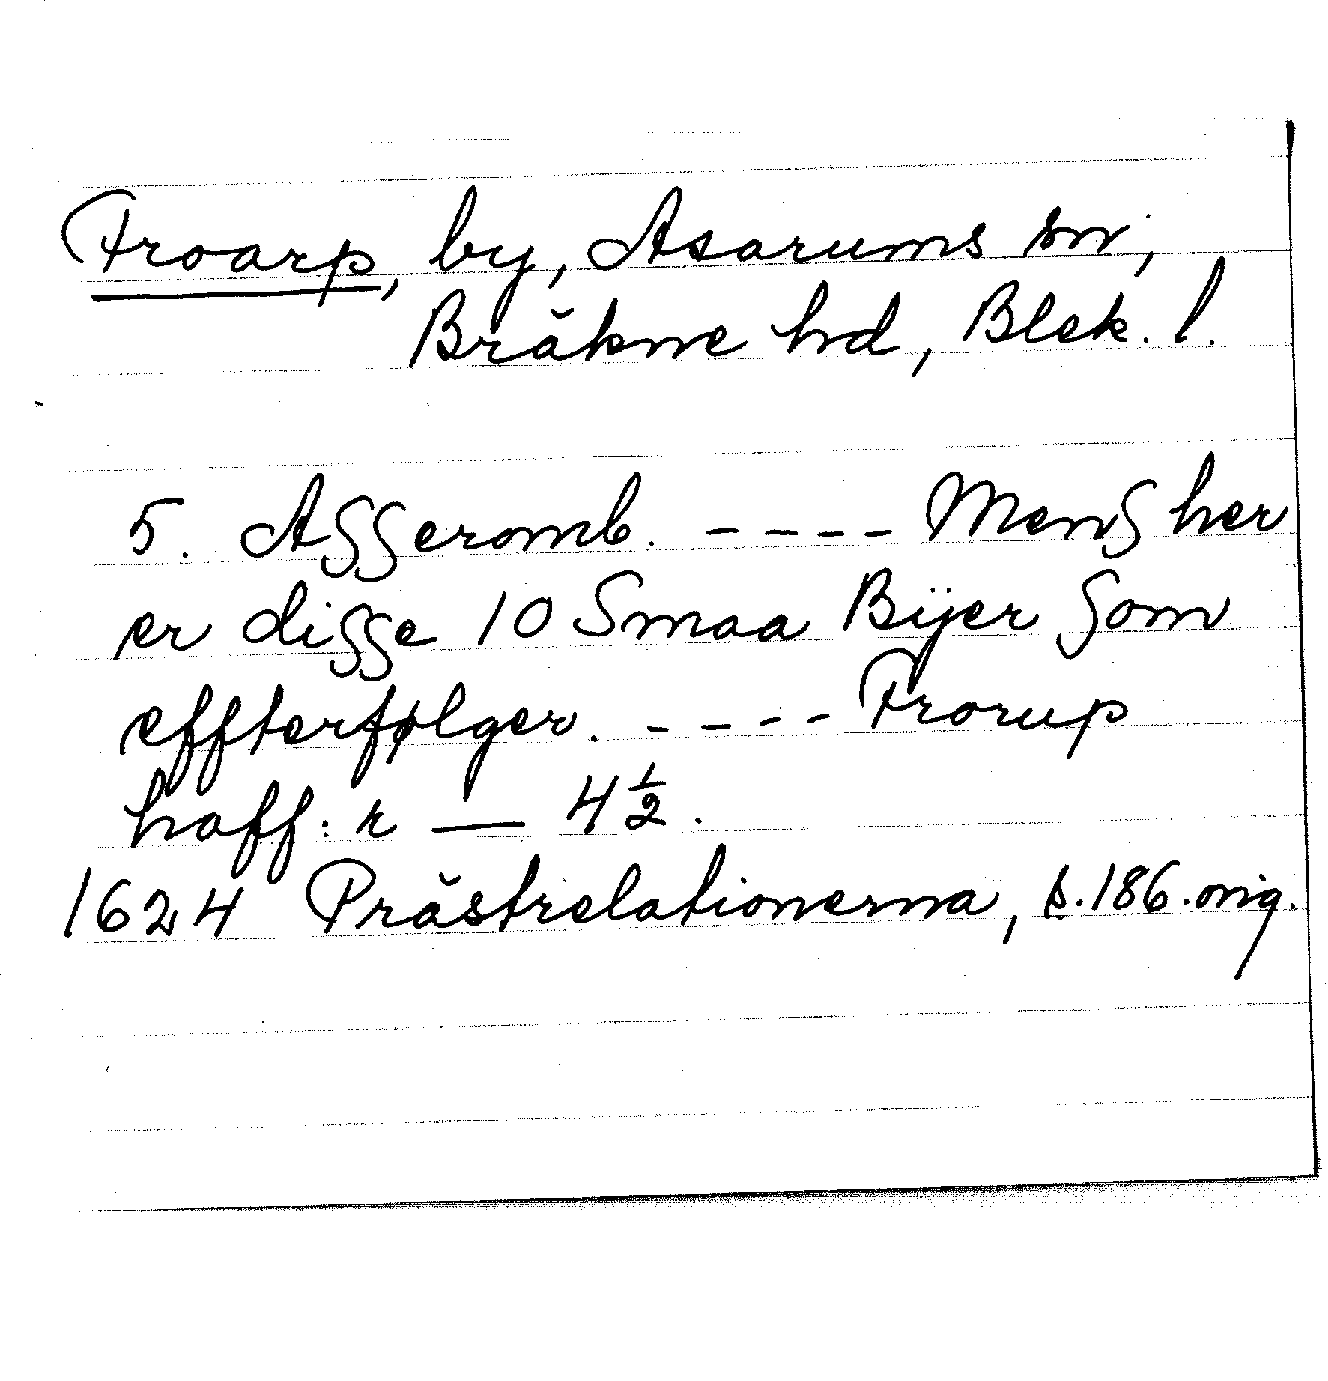 Froarp, by, Asarums sn,
Bräkne hd, Blek. l.
5. Asseromb. ---- Mens her
er disse 10 Smaa Bÿer som
effterfølger. ---- Frorup
haff: r — 4½.
1624 Prästrelationerna, s. 186. orig.